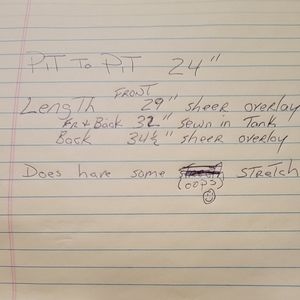 PIT TO PIT 24"
FRONT
LENGTH 29" sheer overlay
FR + Back 32" sewn in Tank
Back 34½" sheer overlay
Does have some STRETCH
(oops)